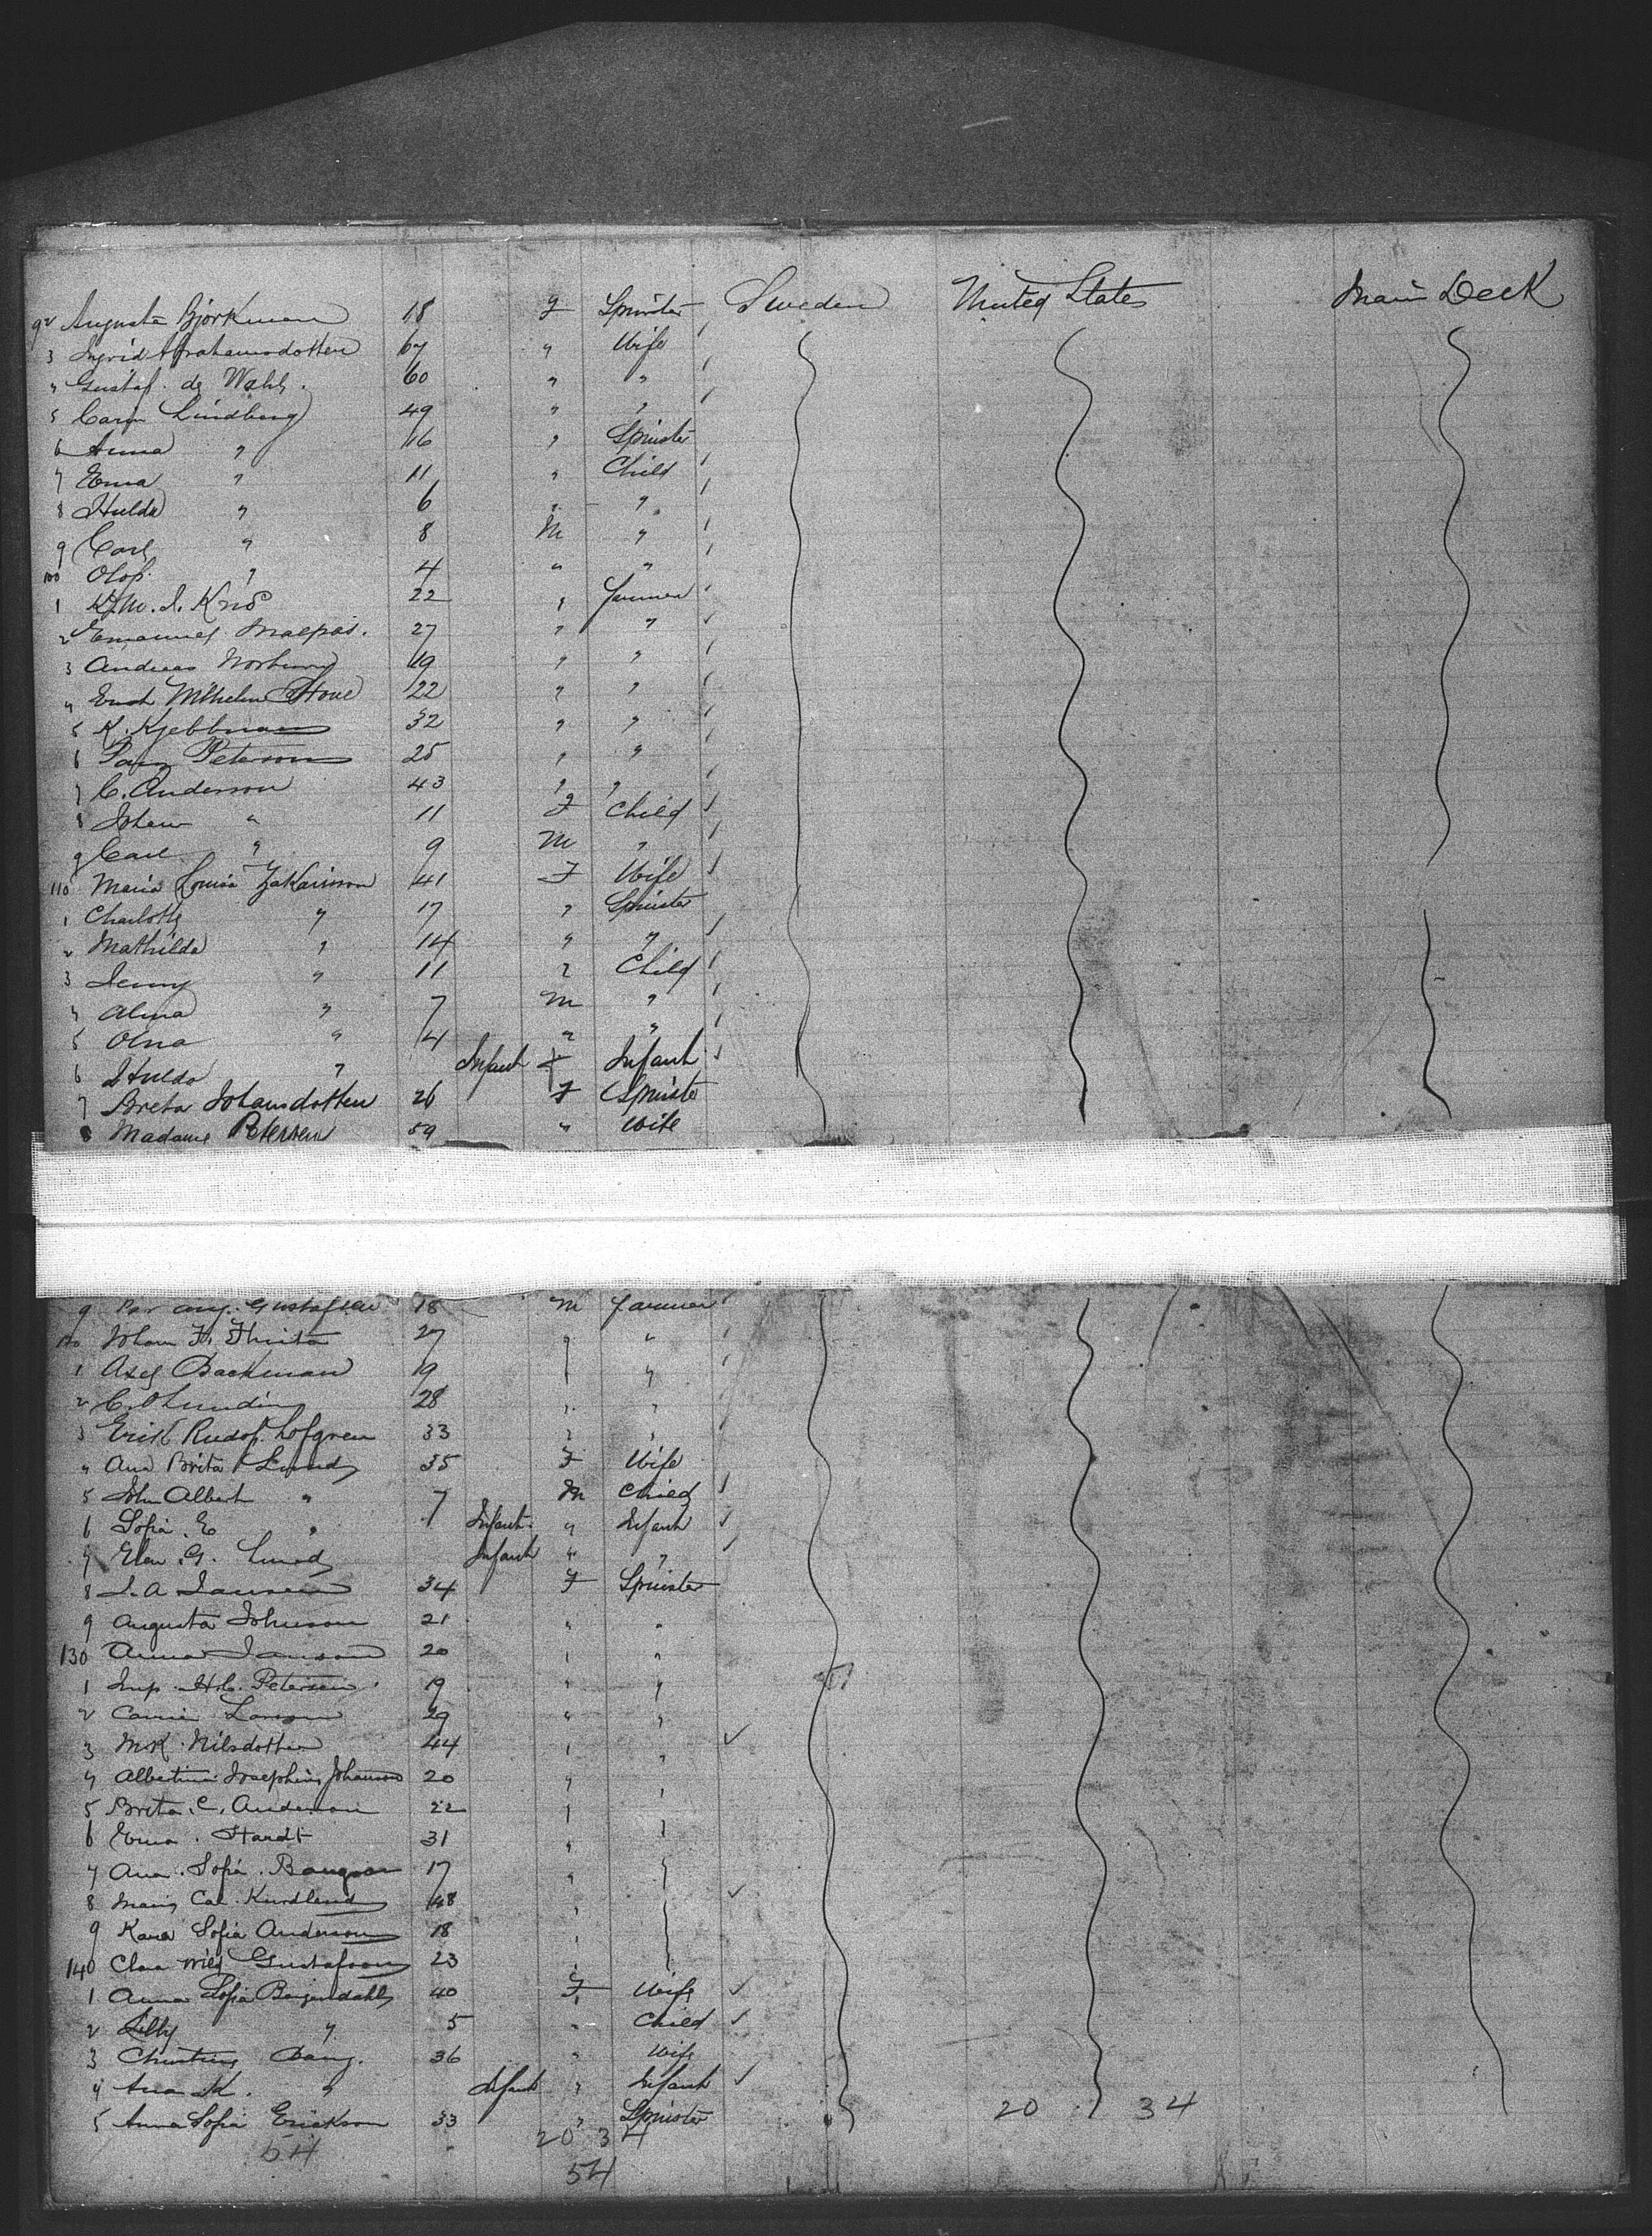 92 Augusta Bjorkman 18 F Spinster Sweden United States Main Deck
3 Ingrid Abrahamsdotten 67 " Wife
4 Gustaf de Wahl. 60 " "
5 Carin Lindberg 49 " "
6 Anna " 16 " Spinster
7 Erna " 11 " Child
8 Hulda " 6 " "
9 Carl " 8 M "
100 Olof. " 4 " "
1 22 " Farmer
2 Emanuel 27 " "
3 Andreas Norberg 19 " "
4 Wilhelm 22 " "
5 K. 32 " "
6 Peterson 25 " "
7 C. Anderson 43 " "
8 Johan " 11 F Child
9 Carl " 9 M "
110 Maria Louisa Zakarisson 41 F Wife
1 Charlotte " 17 " Spinster
2 Mathilda " 14 " "
3 Jenny " 11 " Child
4 Alma " 7 M "
5 Olna " 4 " "
6 Hulda " Infant F Infant
7 Breta Johansdotten 26 F Spinster
8 Madame Petersen 59 " Wife
9 Gustafsen 18 M Farmer
120 Johan F. 27 " "
1 Axel Backman 19 " "
2 C. O Lundin 28 " "
3 Erik Rudof. Lofgren 33 " "
4 Ana Brita Lund 35 F Wife
5 John Albert " 7 M Child
6 Sofia. E " Infant " Infant
7 Elen. G. Lund Infant " "
8 34 F Spinster
9 Augusta Johnson 21 " "
130 Anna Janson 20 " "
1 Petersen 19 " "
2 Carrie Larson 29 " "
3 M K Nilsdotten 44 " "
4 Albertina Josephine Johanson 20 " "
5 Breta. C. Anderson 22 " "
6 Erna. Hardt 31 " "
7 Ana. Sofia. 17 " "
8 Cal. 48 " "
9 Kara Sofia Anderson 18 " "
140 Clara Gustafson 23 " "
1 Anna Sofia 40 F Wife
2 Lilly " 5 " Child
3 36 " Wife
4 Ana K. " Infant " Infant
5 Anna Sofia Erickson 33 " Spinster
20 34
54 20 34
54